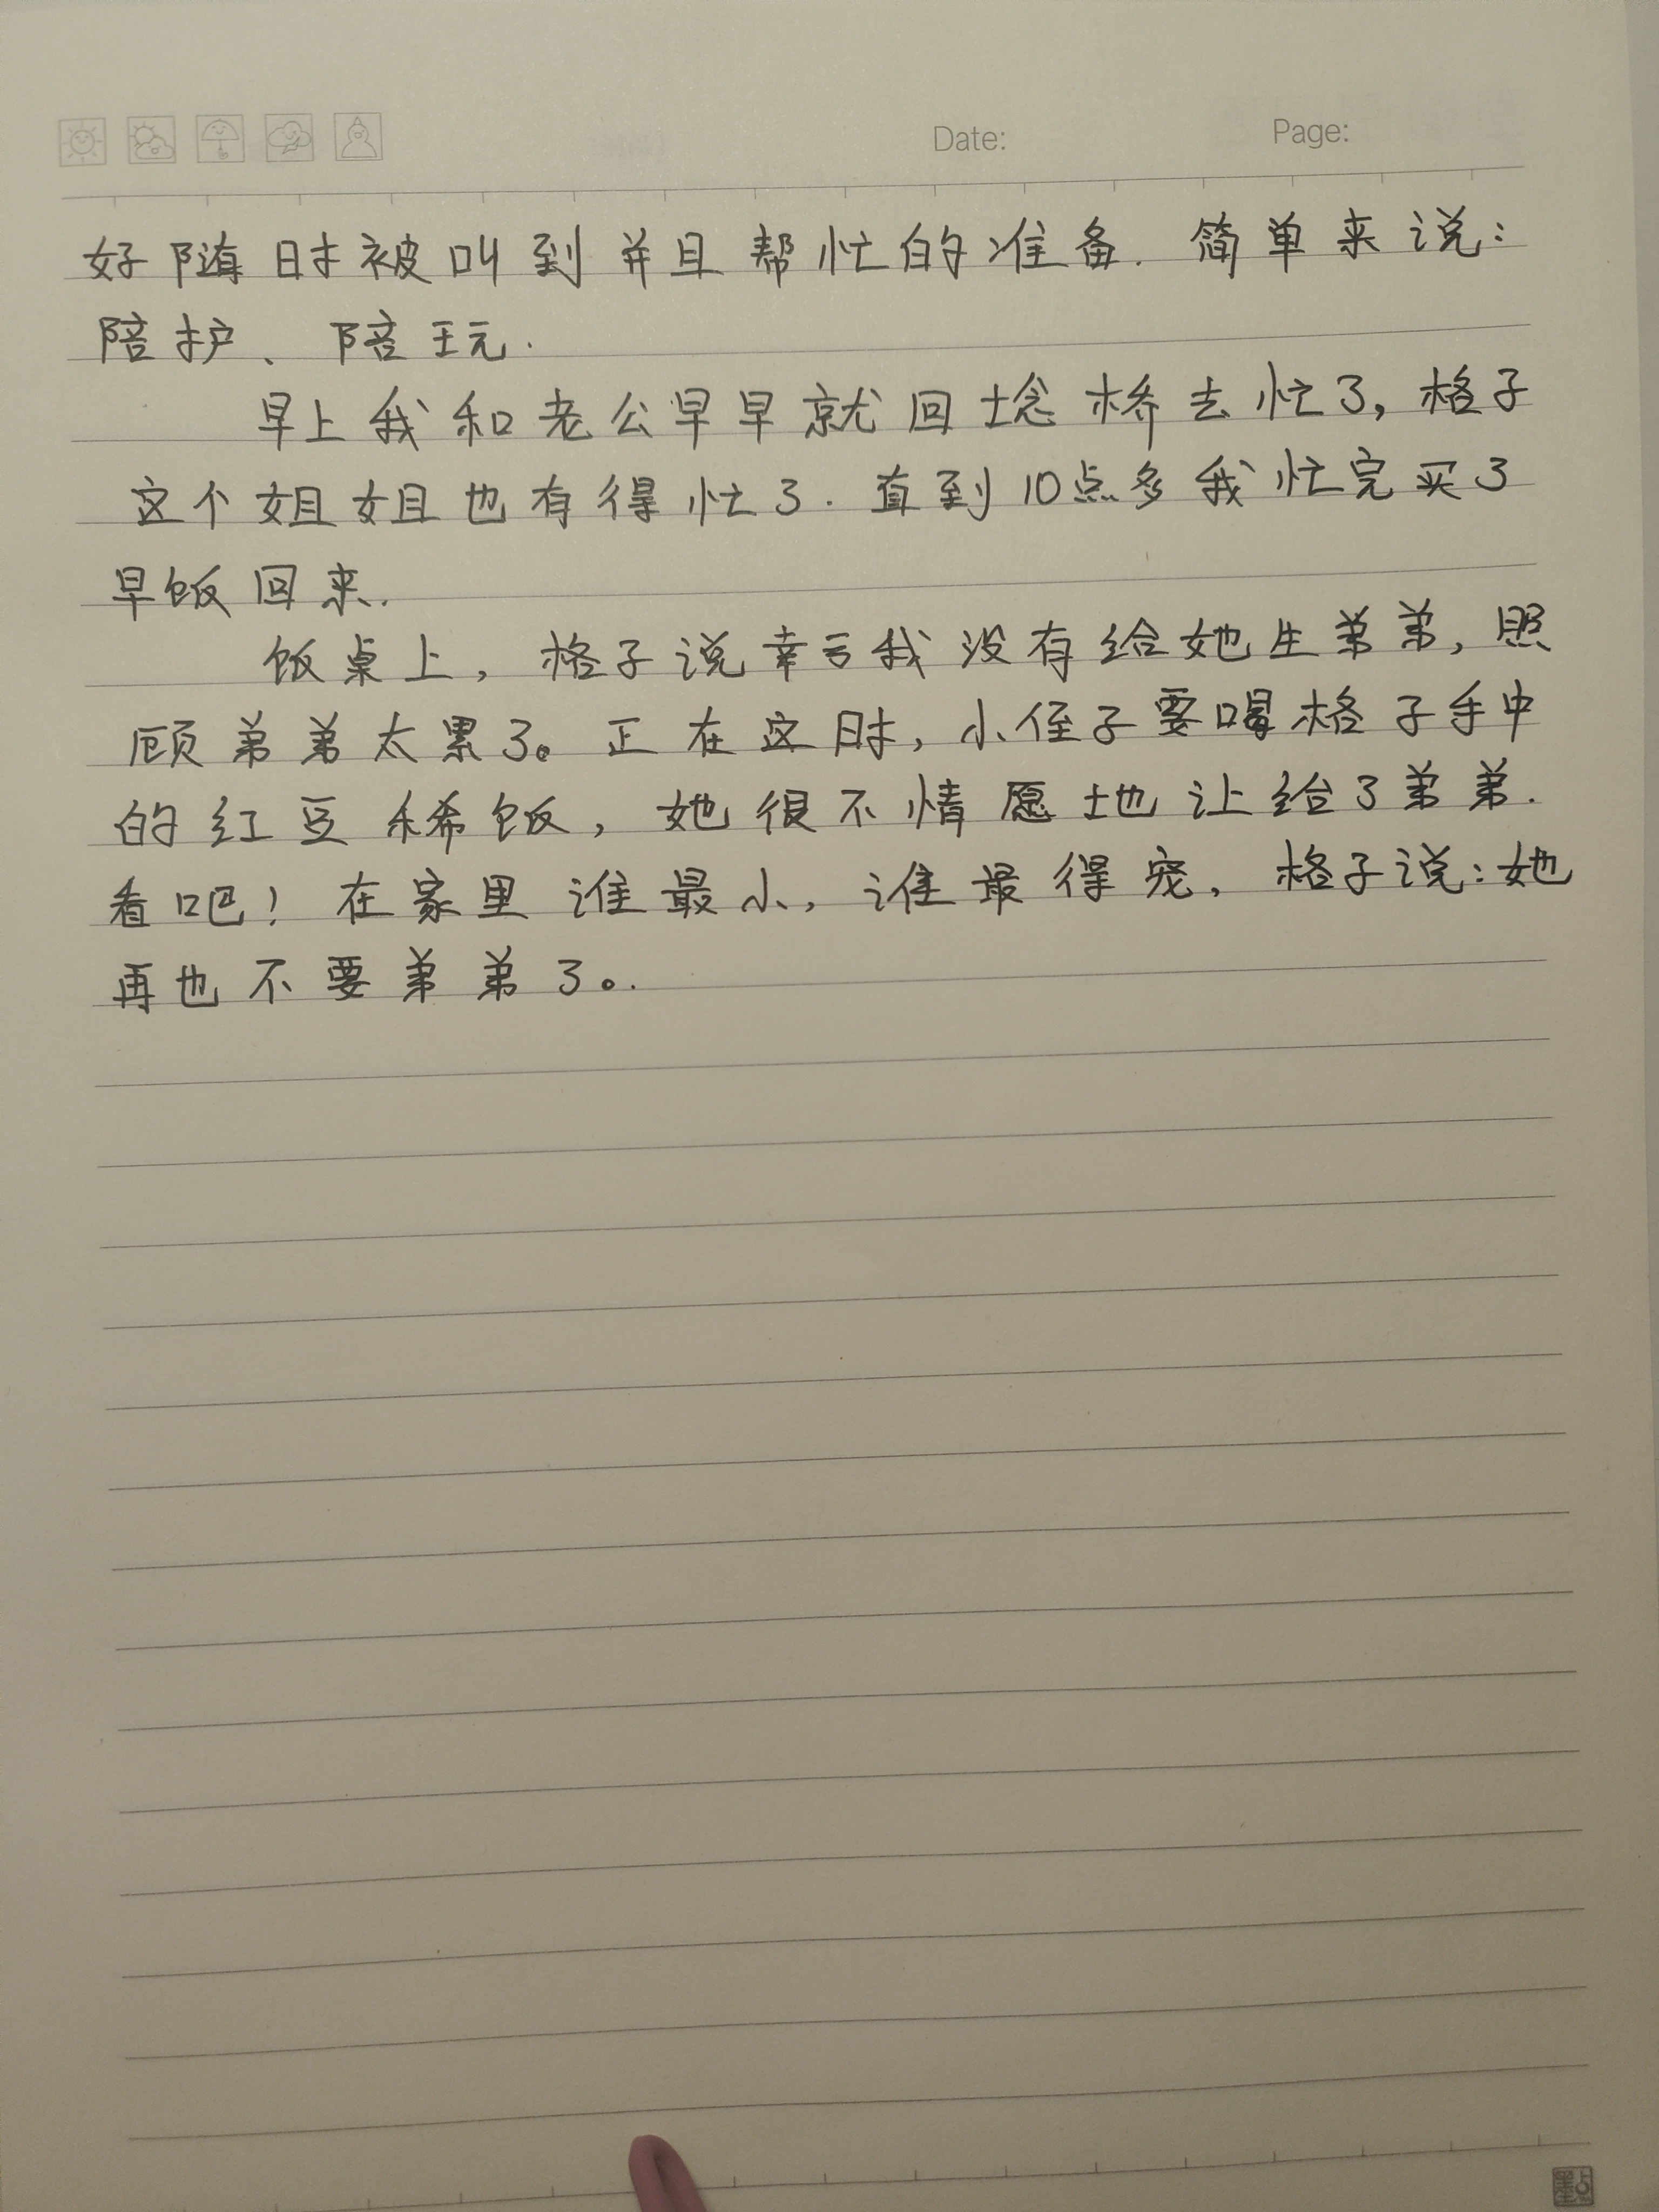 Date: Page:
好随时被叫到并且帮忙的准备. 简单来说:
陪护、陪玩.
早上我和老公早早就回埝桥去忙了, 格子
这个姐姐也有得忙了. 直到10点多我忙完买了
早饭回来.
饭桌上, 格子说幸亏我没有给她生弟弟, 照
顾弟弟太累了。正在这时, 小侄子要喝格子手中
的红豆稀饭, 她很不情愿地让给了弟弟.
看吧! 在家里谁最小, 谁最得宠, 格子说: 她
再也不要弟弟了。.
點